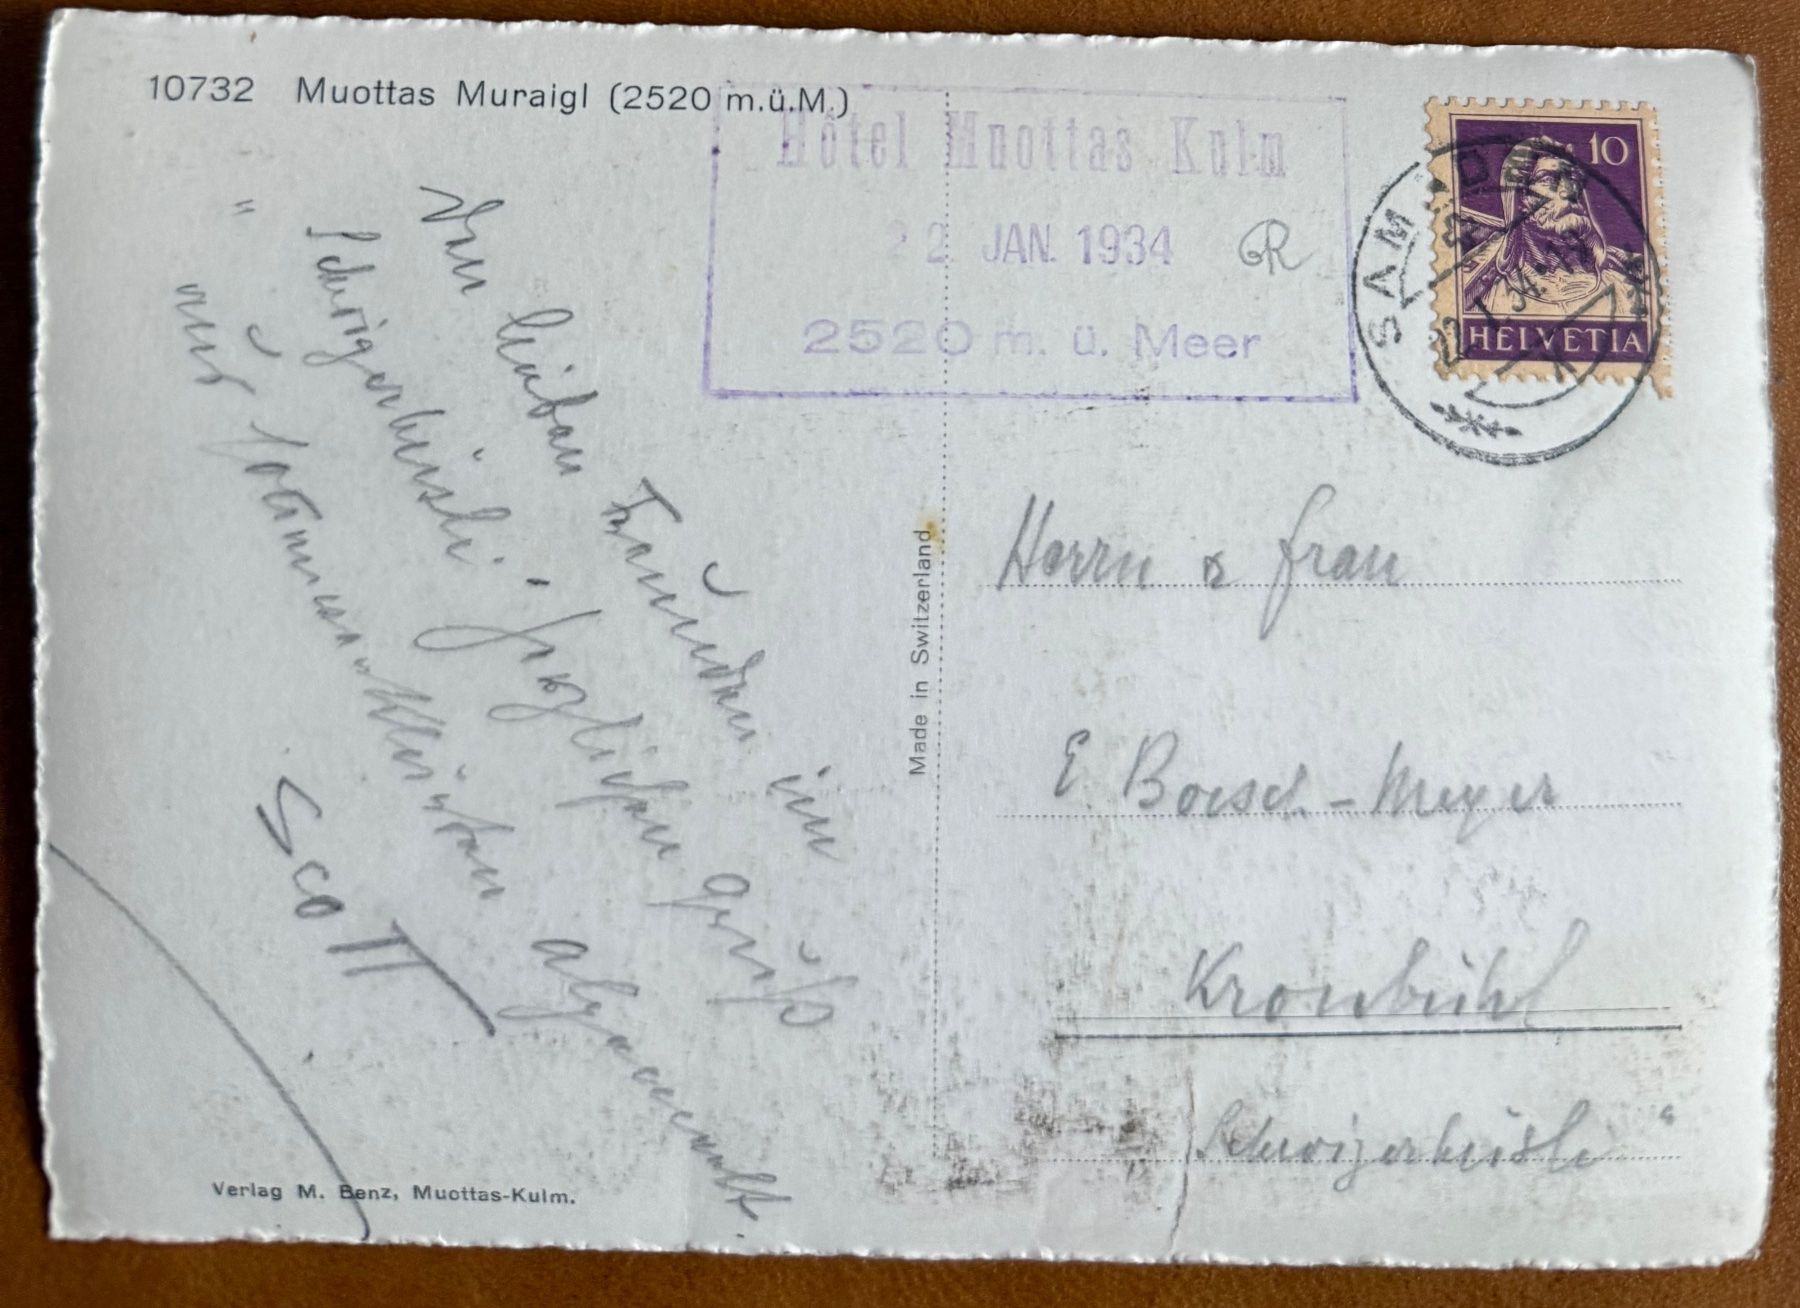 10732 Muottas Muraigl (2520 m.ü.M.)
Hôtel Muottas Kulm
22. JAN. 1934
2520 m. ü. Meer
10
HELVETIA
SAMADEN
Den lieben Freunden im
"Schwizerhüsli" herzlichen Gruß
aus
Scott
Made in Switzerland
Herrn & Frau
E. Boesch-Meyer
Kronbühl
"Schwizerhüsli"
Verlag M. Benz, Muottas-Kulm.